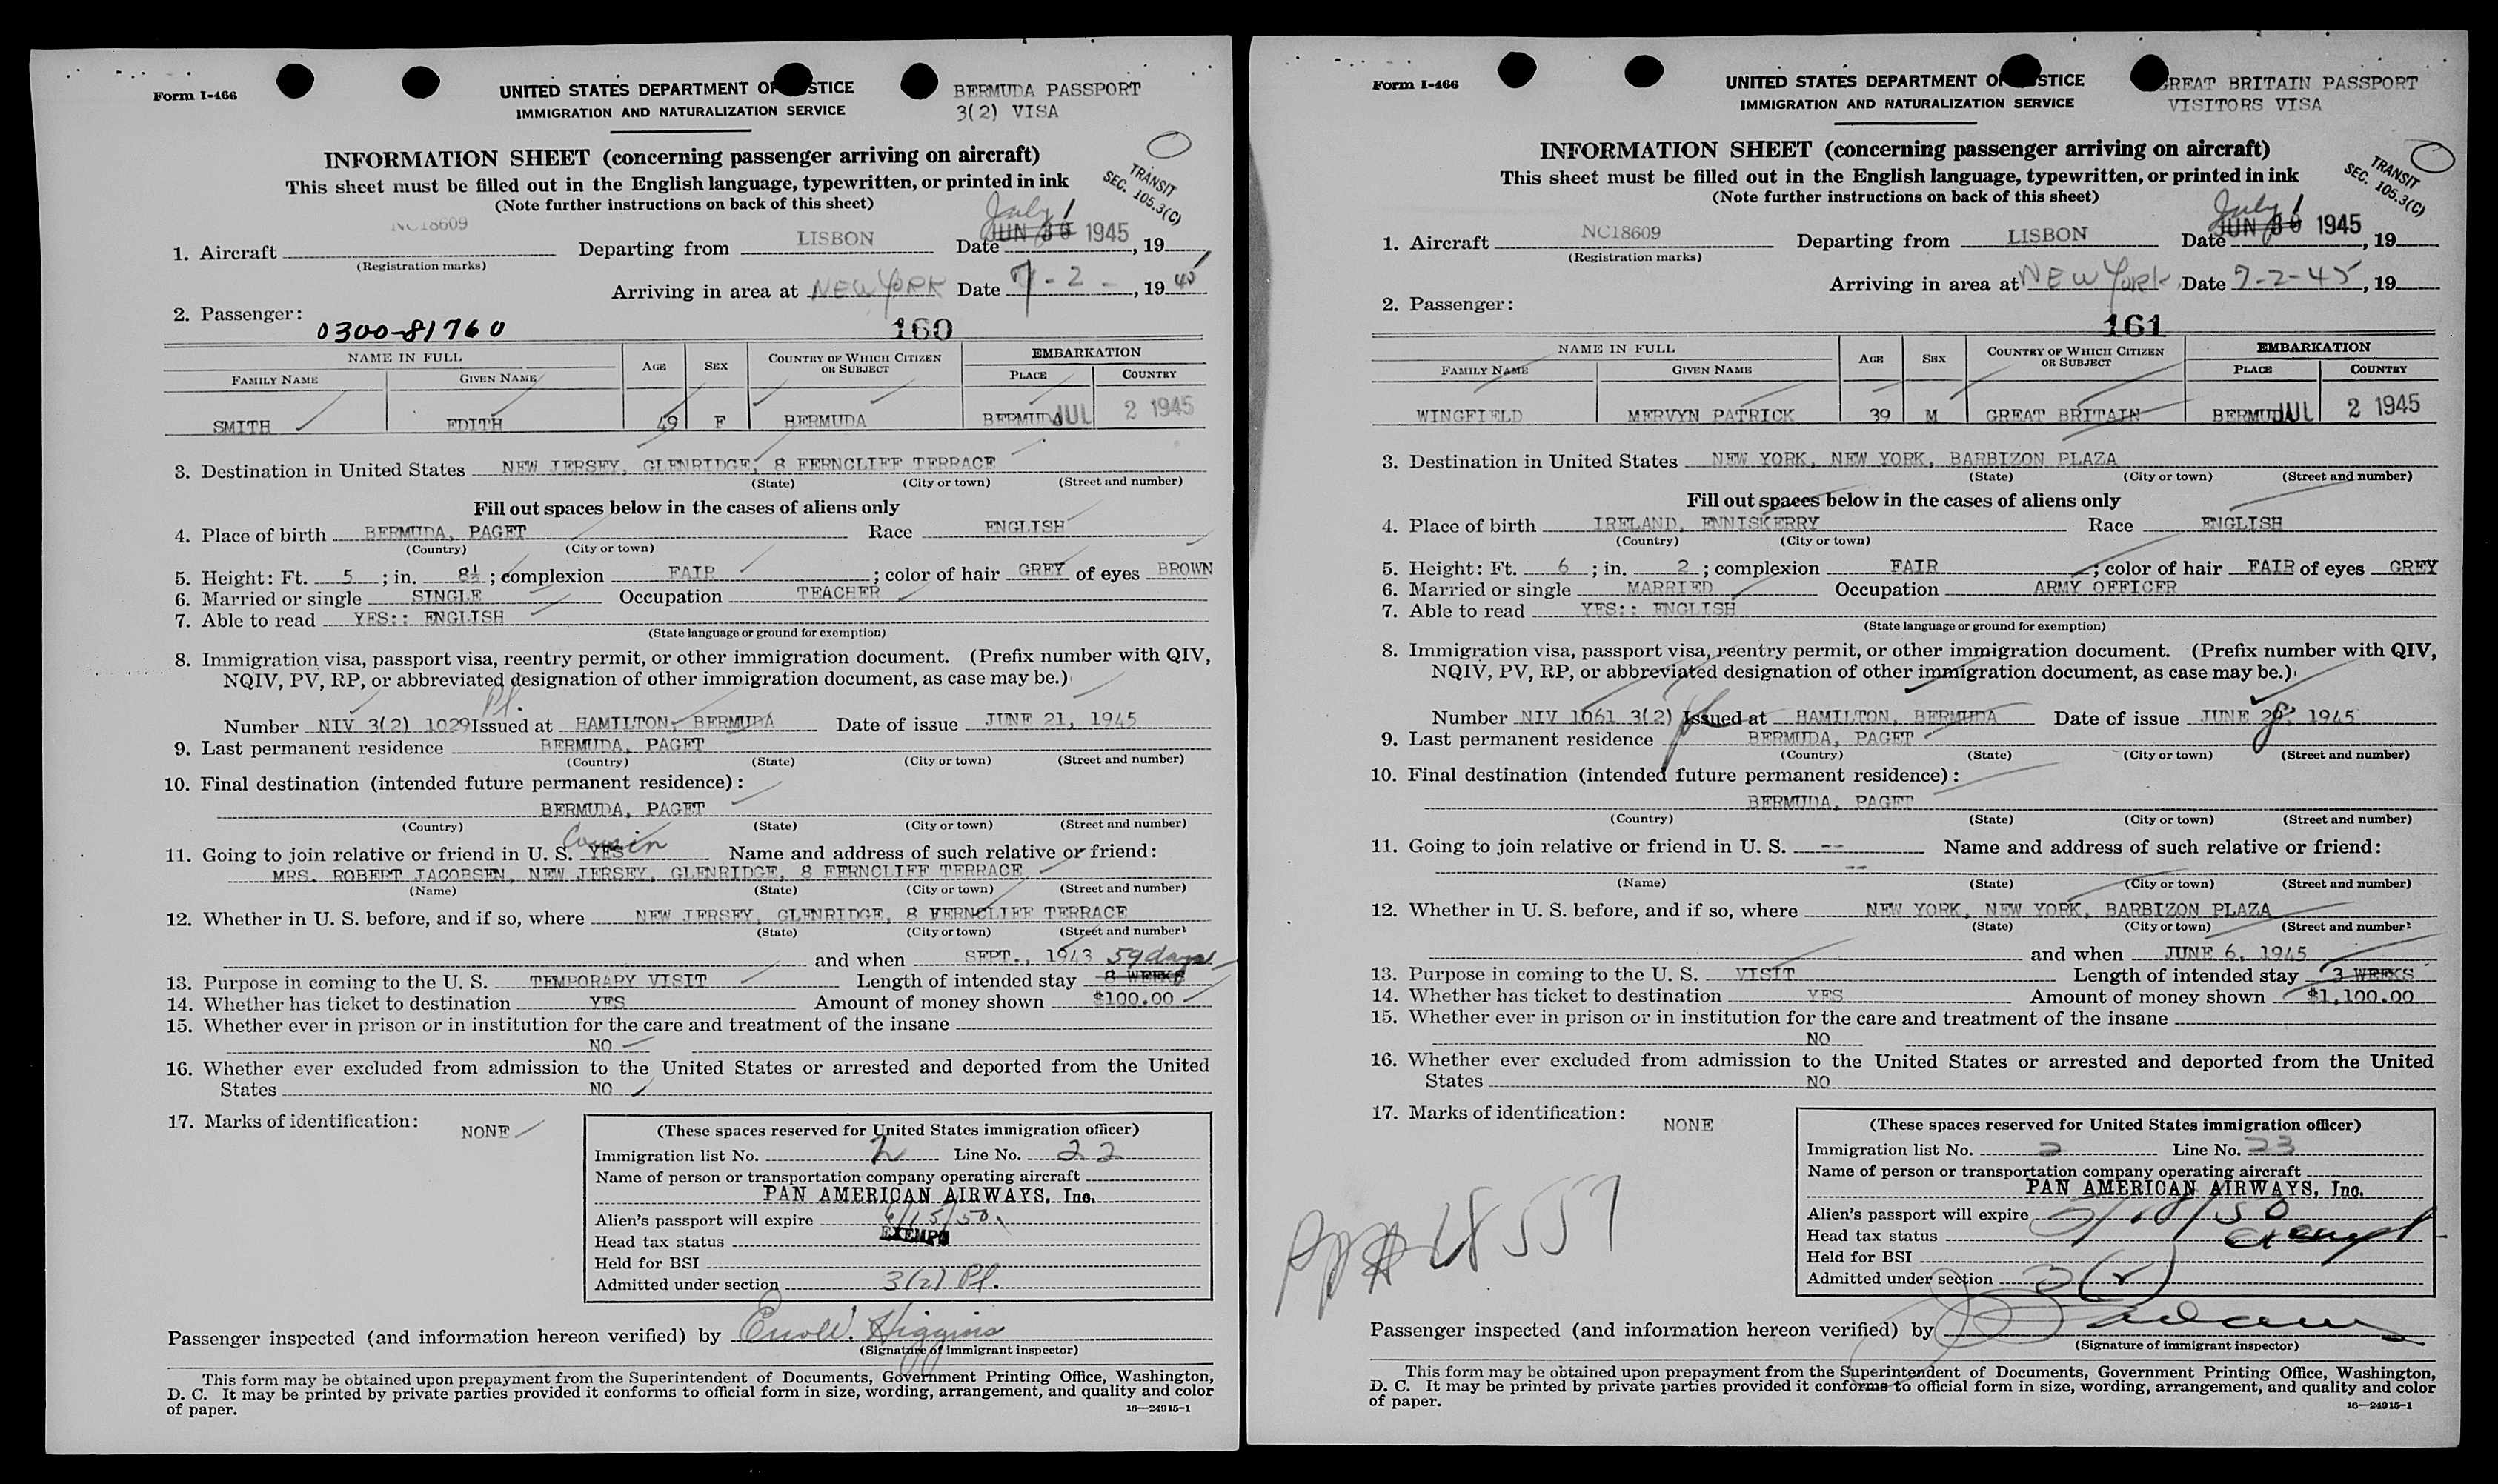 Form I-466
UNITED STATES DEPARTMENT OF JUSTICE
IMMIGRATION AND NATURALIZATION SERVICE
BERMUDA PASSPORT
3(2) VISA
INFORMATION SHEET (concerning passenger arriving on aircraft)
This sheet must be filled out in the English language, typewritten, or printed in ink
(Note further instructions on back of this sheet)
TRANSIT
SEC. 105.3(C)
July 1
1. Aircraft NC18609 Departing from LISBON Date JUN 30 1945, 19
(Registration marks)
Arriving in area at NEW YORK Date 7-2-, 1945
2. Passenger:
0300-81760 160
NAME IN FULL AGE SEX COUNTRY OF WHICH CITIZEN OR SUBJECT EMBARKATION
FAMILY NAME GIVEN NAME PLACE COUNTRY
SMITH EDITH 49 F BERMUDA BERMUDA JUL 2 1945
3. Destination in United States NEW JERSEY, GLENRIDGE, 8 FERNCLIFF TERRACE
(State) (City or town) (Street and number)
Fill out spaces below in the cases of aliens only
4. Place of birth BERMUDA, PAGET Race ENGLISH
(Country) (City or town)
5. Height: Ft. 5 ; in. 8½ ; complexion FAIR ; color of hair GREY of eyes BROWN
6. Married or single SINGLE Occupation TEACHER
7. Able to read YES:: ENGLISH
(State language or ground for exemption)
8. Immigration visa, passport visa, reentry permit, or other immigration document. (Prefix number with QIV,
NQIV, PV, RP, or abbreviated designation of other immigration document, as case may be.)
Pl.
Number NIV 3(2) 1029 Issued at HAMILTON, BERMUDA Date of issue JUNE 21, 1945
9. Last permanent residence BERMUDA, PAGET
(Country) (State) (City or town) (Street and number)
10. Final destination (intended future permanent residence):
BERMUDA, PAGET
(Country) (State) (City or town) (Street and number)
Cousin
11. Going to join relative or friend in U. S. YES Name and address of such relative or friend:
MRS. ROBERT JACOBSEN, NEW JERSEY, GLENRIDGE, 8 FERNCLIFF TERRACE
(Name) (State) (City or town) (Street and number)
12. Whether in U. S. before, and if so, where NEW JERSEY, GLENRIDGE, 8 FERNCLIFF TERRACE
(State) (City or town) (Street and number)
and when SEPT., 1943 59 days
13. Purpose in coming to the U. S. TEMPORARY VISIT Length of intended stay 8 WEEKS
14. Whether has ticket to destination YES Amount of money shown $100.00
15. Whether ever in prison or in institution for the care and treatment of the insane
NO
16. Whether ever excluded from admission to the United States or arrested and deported from the United
States NO
17. Marks of identification: NONE
(These spaces reserved for United States immigration officer)
Immigration list No. 2 Line No. 22
Name of person or transportation company operating aircraft
PAN AMERICAN AIRWAYS, Inc.
Alien's passport will expire 6/15/50
Head tax status EXEMPT
Held for BSI
Admitted under section 3(2) Pl.
Passenger inspected (and information hereon verified) by Higgins
(Signature of immigrant inspector)
This form may be obtained upon prepayment from the Superintendent of Documents, Government Printing Office, Washington,
D. C. It may be printed by private parties provided it conforms to official form in size, wording, arrangement, and quality and color
of paper.
16—24915-1
Form I-466
UNITED STATES DEPARTMENT OF JUSTICE
IMMIGRATION AND NATURALIZATION SERVICE
GREAT BRITAIN PASSPORT
VISITORS VISA
INFORMATION SHEET (concerning passenger arriving on aircraft)
This sheet must be filled out in the English language, typewritten, or printed in ink
(Note further instructions on back of this sheet)
TRANSIT
SEC. 105.3(C)
July 1
1. Aircraft NC18609 Departing from LISBON Date JUN 30 1945, 19
(Registration marks)
Arriving in area at NEW YORK Date 7-2-45, 19
2. Passenger:
161
NAME IN FULL AGE SEX COUNTRY OF WHICH CITIZEN OR SUBJECT EMBARKATION
FAMILY NAME GIVEN NAME PLACE COUNTRY
WINGFIELD MERVYN PATRICK 39 M GREAT BRITAIN BERMUDA JUL 2 1945
3. Destination in United States NEW YORK, NEW YORK, BARBIZON PLAZA
(State) (City or town) (Street and number)
Fill out spaces below in the cases of aliens only
4. Place of birth IRELAND, ENNISKERRY Race ENGLISH
(Country) (City or town)
5. Height: Ft. 6 ; in. 2 ; complexion FAIR ; color of hair FAIR of eyes GREY
6. Married or single MARRIED Occupation ARMY OFFICER
7. Able to read YES:: ENGLISH
(State language or ground for exemption)
8. Immigration visa, passport visa, reentry permit, or other immigration document. (Prefix number with QIV,
NQIV, PV, RP, or abbreviated designation of other immigration document, as case may be.)
Number NIV 1061 3(2) Issued at HAMILTON, BERMUDA Date of issue JUNE 28, 1945
9. Last permanent residence BERMUDA, PAGET
(Country) (State) (City or town) (Street and number)
10. Final destination (intended future permanent residence):
BERMUDA, PAGET
(Country) (State) (City or town) (Street and number)
11. Going to join relative or friend in U. S. -- Name and address of such relative or friend:
--
(Name) (State) (City or town) (Street and number)
12. Whether in U. S. before, and if so, where NEW YORK, NEW YORK, BARBIZON PLAZA
(State) (City or town) (Street and number)
and when JUNE 6, 1945
13. Purpose in coming to the U. S. VISIT Length of intended stay 3 WEEKS
14. Whether has ticket to destination YES Amount of money shown $1,100.00
15. Whether ever in prison or in institution for the care and treatment of the insane
NO
16. Whether ever excluded from admission to the United States or arrested and deported from the United
States NO
17. Marks of identification: NONE
(These spaces reserved for United States immigration officer)
Immigration list No. 2 Line No. 23
Name of person or transportation company operating aircraft
PAN AMERICAN AIRWAYS, Inc.
Alien's passport will expire
Head tax status Exempt
Held for BSI
Admitted under section 3(2)
Passenger inspected (and information hereon verified) by
(Signature of immigrant inspector)
This form may be obtained upon prepayment from the Superintendent of Documents, Government Printing Office, Washington,
D. C. It may be printed by private parties provided it conforms to official form in size, wording, arrangement, and quality and color
of paper.
16—24915-1